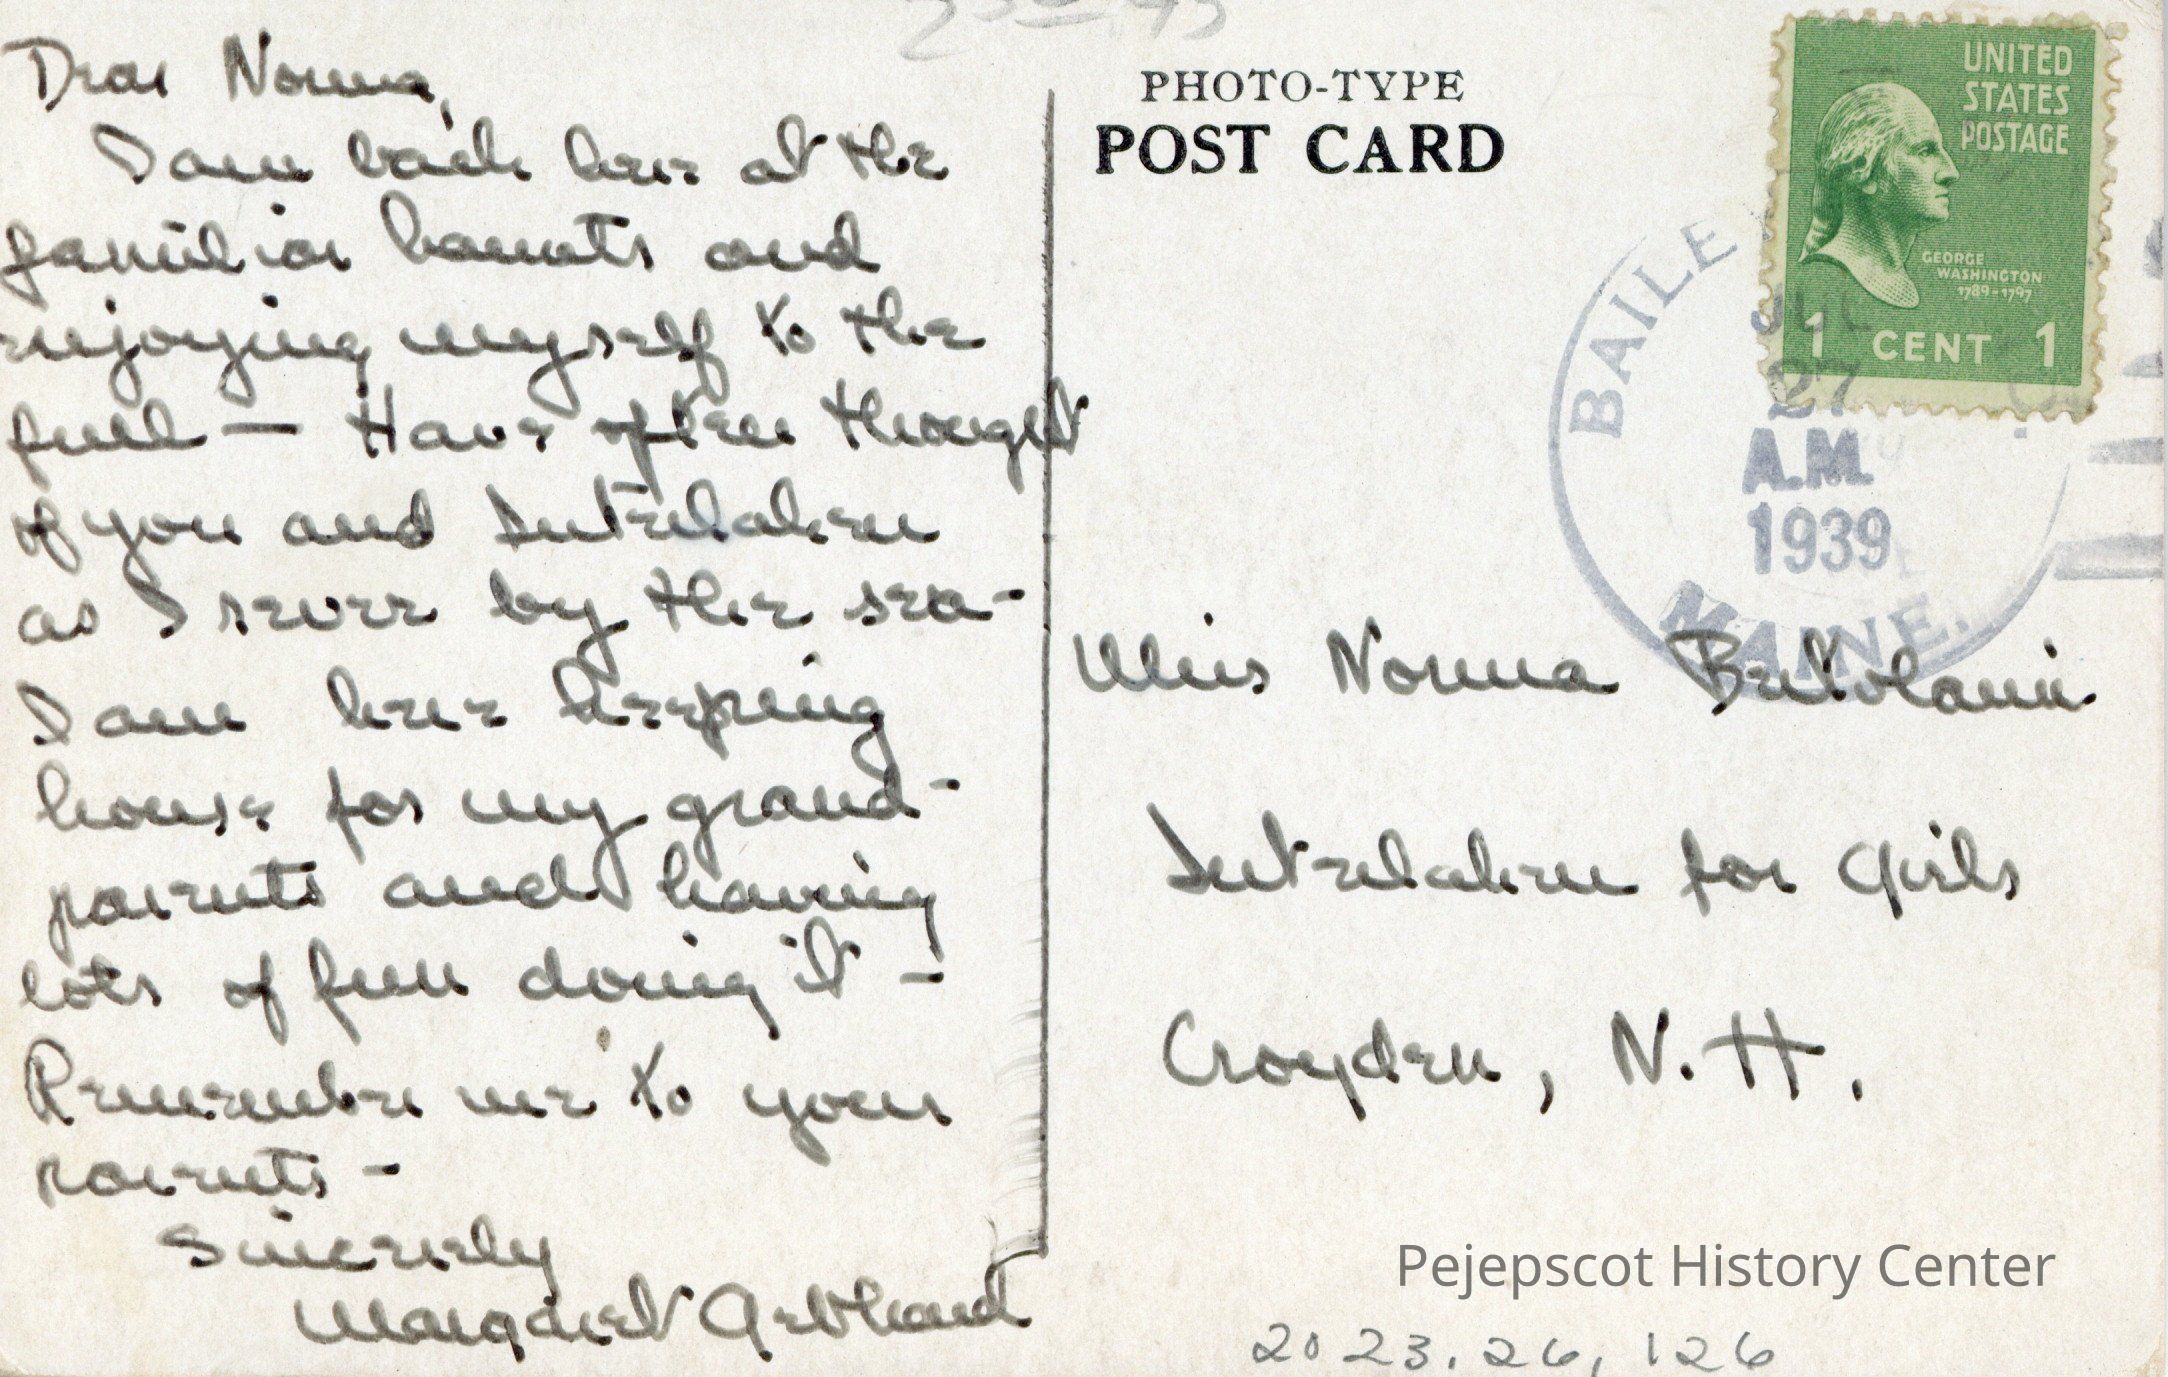 Dear Norma,
I am back here at the
familiar haunts and
enjoying myself to the
full — Have often thought
of you and Interlaken
as I serve by the sea-
I am here keeping
house for my grand-
parents and having
lots of fun doing it -
Remember me to your
parents -
Sincerely
Margaret
PHOTO-TYPE
POST CARD
UNITED
STATES
POSTAGE
GEORGE
WASHINGTON
1789-1797
1 CENT 1
BAILEY
JUL
27
A.M.
1939
MAINE.
Miss Norma
Interlaken for Girls
Croyden, N.H.
Pejepscot History Center
2023.26.126